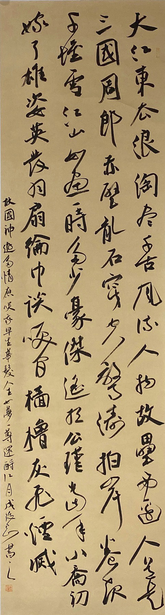 大江东去浪淘尽千古风流人物故垒西边人道是
三國周郎赤壁乱石穿空惊涛拍岸卷起
千堆雪江山如画一時多少豪傑遥想公瑾当年小喬初
嫁了雄姿英发羽扇綸巾谈笑间檣櫓灰飞煙滅
故國神遊多情应笑我早生華髮人生如夢一尊还酹江月